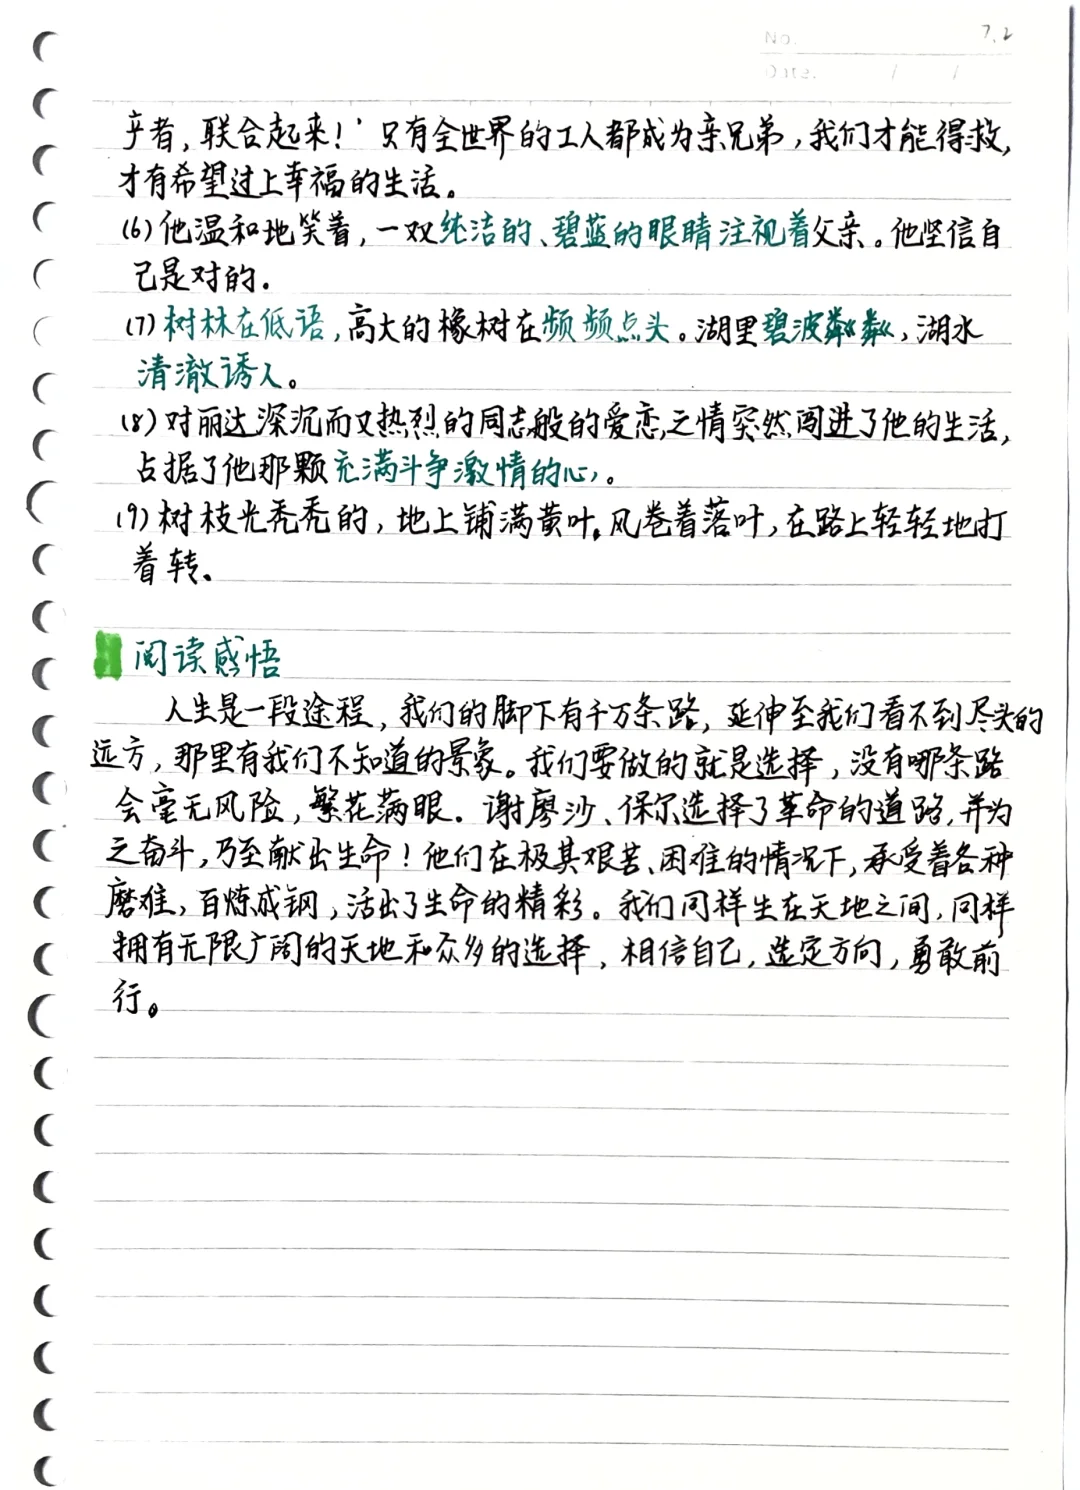 No. 7.2
Date. / /
产者，联合起来！’只有全世界的工人都成为亲兄弟，我们才能得救，
才有希望过上幸福的生活。
(6)他温和地笑着，一双纯洁的、碧蓝的眼睛注视着父亲。他坚信自
己是对的.
(7)树林在低语，高大的橡树在频频点头。湖里碧波粼粼，湖水
清澈诱人。
(8)对丽达深沉而又热烈的同志般的爱恋之情突然闯进了他的生活，
占据了他那颗充满斗争激情的心。
(9)树枝光秃秃的，地上铺满黄叶。风卷着落叶，在路上轻轻地打
着转、
阅读感悟
人生是一段途程，我们的脚下有千万条路，延伸至我们看不到尽头的
远方，那里有我们不知道的景象。我们要做的就是选择，没有哪条路
会毫无风险，繁花满眼．谢廖沙、保尔选择了革命的道路，并为
之奋斗，乃至献出生命！他们在极其艰苦、困难的情况下，承受着各种
磨难，百炼成钢，活出了生命的精彩。我们同样生在天地之间，同样
拥有无限广阔的天地和众多的选择，相信自己，选定方向，勇敢前
行。